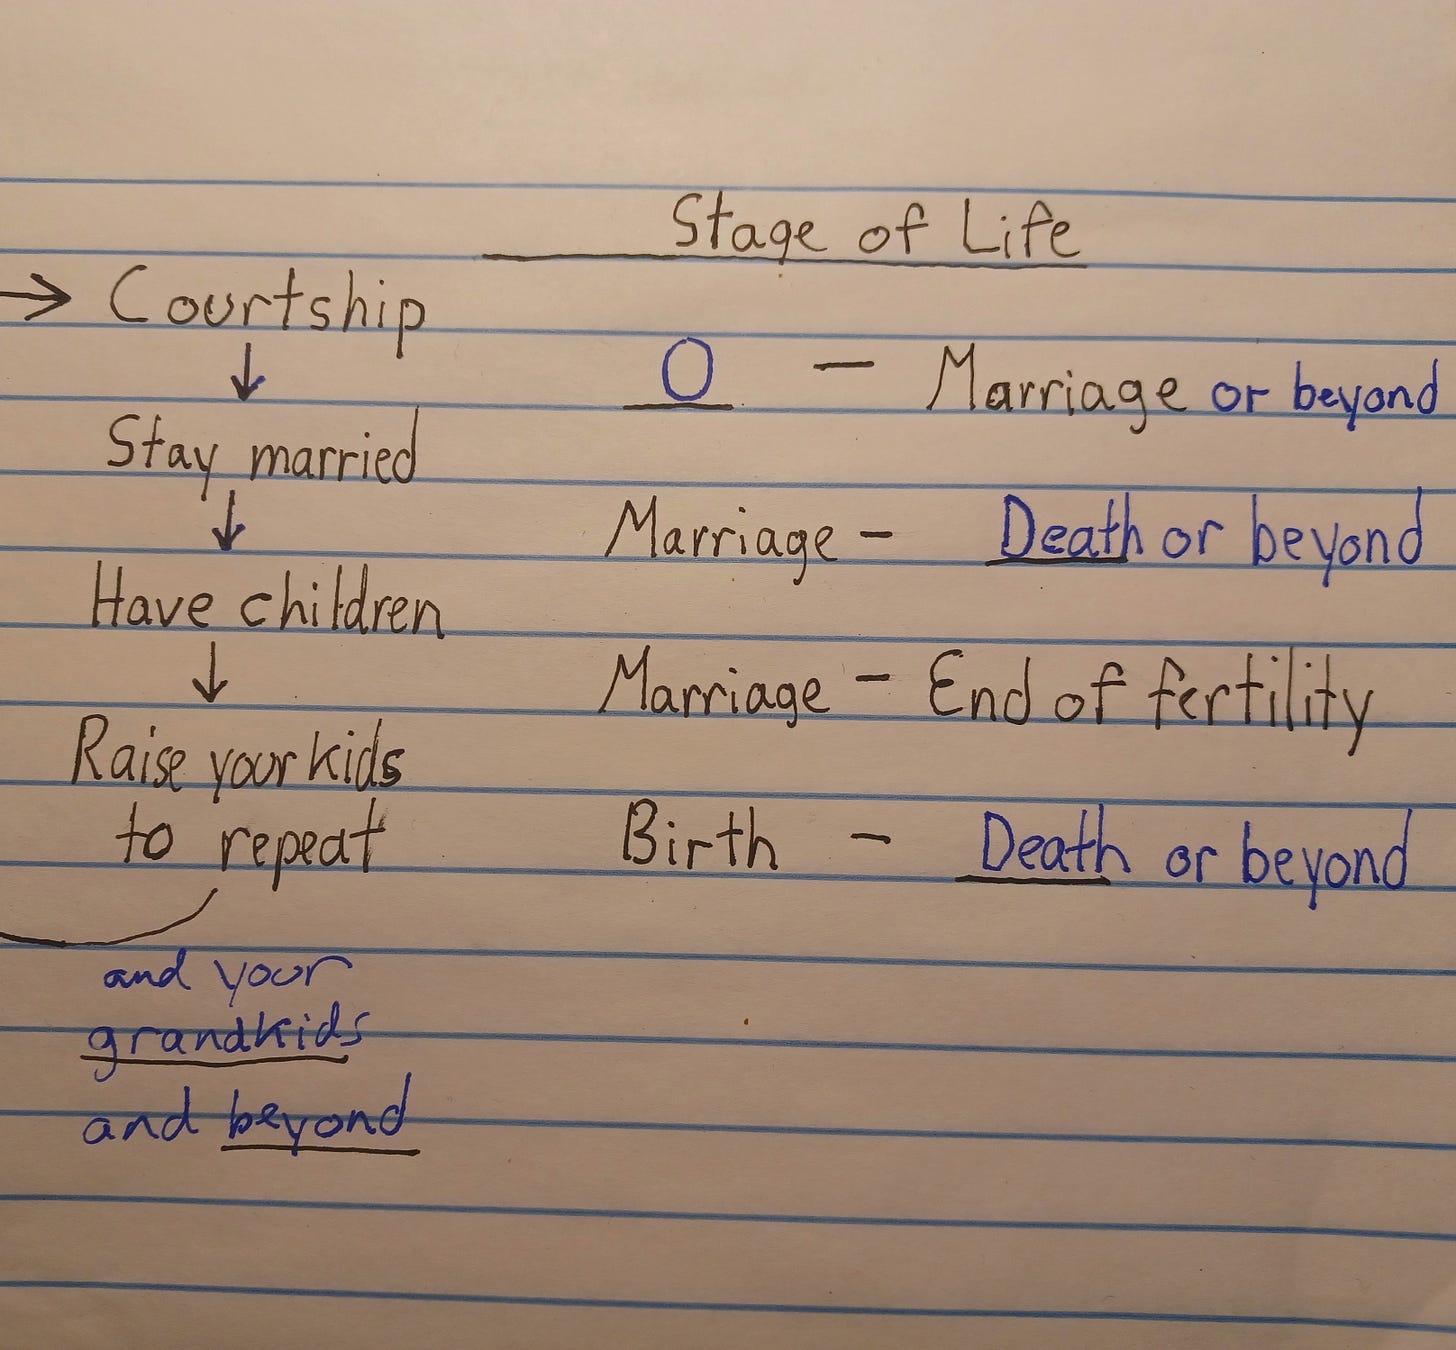 Stage of Life
→ Courtship
O - Marriage or beyond
↓
Stay married
Marriage - Death or beyond
↓
Have children
Marriage - End of fertility
↓
Raise your kids
to repeat
Birth - Death or beyond
and your
grandkids
and beyond